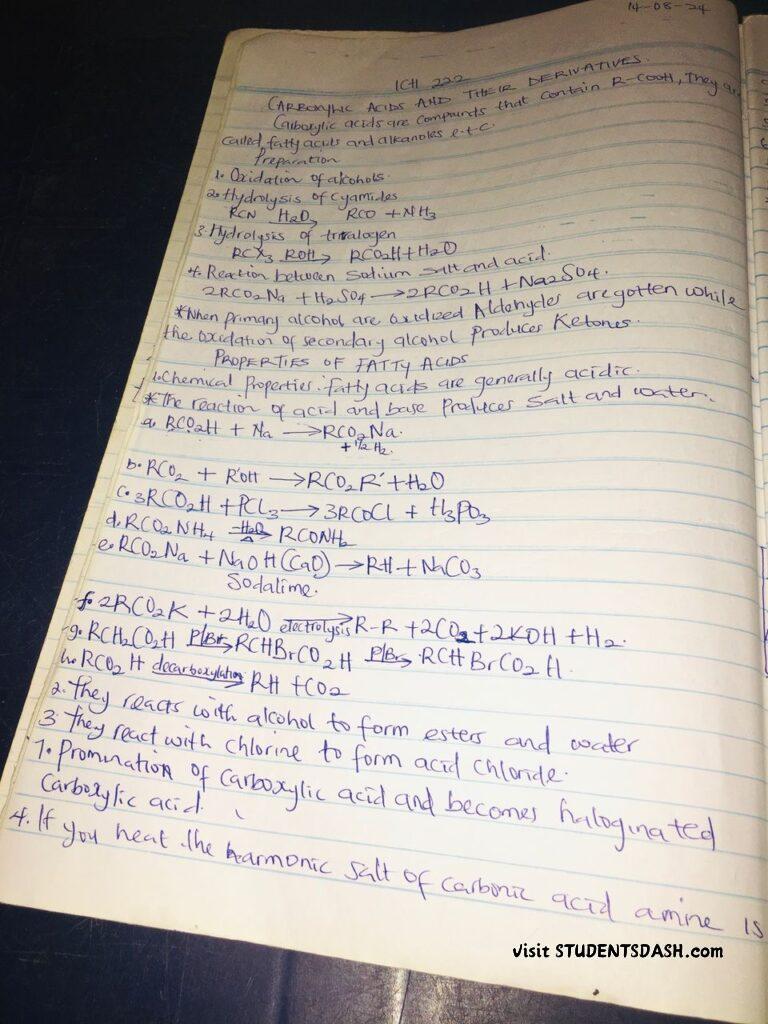 14-08-24
ICH 222
CARBOXYLIC ACIDS AND THEIR DERIVATIVES.
Carboxylic acids are compounds that contain R-COOH, They are
called fatty acids and alkanoles e.t.c.
Preparation
1. Oxidation of alcohols.
2. Hydrolysis of Cyamides
RCN H2O→ RCO + NH3
3. Hydrolysis of trivalogen
RCX3 ROH→ RCO2H + H2O
4. Reaction between Sodium salt and acid.
2RCO2Na + H2SO4 → 2RCO2H + Na2SO4.
*When primary alcohol are oxidized Aldehydes are gotten while
the oxidation of secondary alcohol produces Ketones.
PROPERTIES OF FATTY ACIDS
1. Chemical Properties: fatty acids are generally acidic.
*The reaction of acid and base produces salt and water.
a. RCO2H + Na → RCO2Na.
+ 1/2 H2.
b. RCO2 + R'OH → RCO2R' + H2O
c. 3RCO2H + PCl3 → 3RCOCl + H3PO3
d. RCO2NH4 H2O/Δ→ RCONH2
e. RCO2Na + NaOH (CaO) → RH + NaCO3
Sodalime.
f. 2RCO2K + 2H2O electrolysis→ R-R + 2CO2 + 2KOH + H2.
g. RCH2CO2H P/Br→ RCHBrCO2H P/Br→ RCHBrCO2H.
h. RCO2H decarboxylation→ RH + CO2
2. They reacts with alcohol to form esters and water
3. They react with chlorine to form acid chloride.
7. Promination of carboxylic acid and becomes haloginated
Carboxylic acid.
4. If you heat the harmonic salt of carbonic acid amine is
visit STUDENTSDASH.com